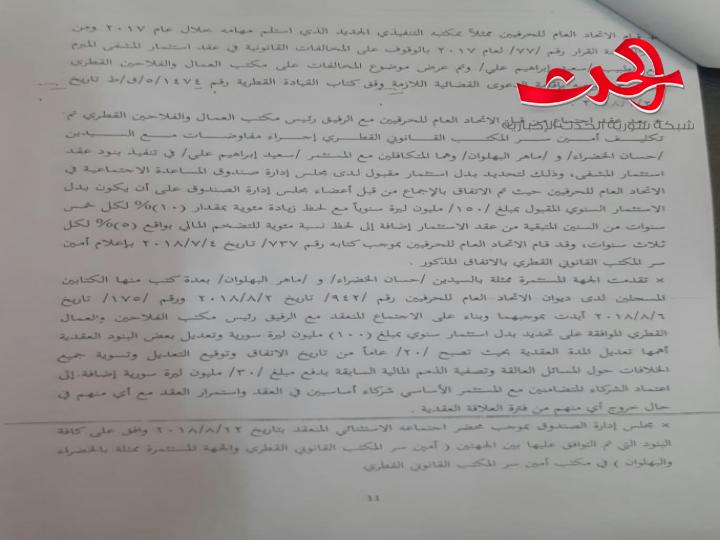 × قام الاتحاد العام للحرفيين ممثلاً بمكتبه التنفيذي الجديد الذي استلم مهامه خلال عام ٢٠١٧ ومن
القرار رقم /٧٧/ لعام ٢٠١٧ بالوقوف على المخالفات القانونية في عقد استثمار المشفى المبرم
إبراهيم علي/ وتم عرض موضوع المخالفات على مكتب العمال والفلاحين القطري
الدعوى القضائية اللازمة وفق كتاب القيادة القطرية رقم ١٤٧٤/٥/ق/ط تاريخ
الحدث
شبكة سورية الحدث الإخبارية
الاتحاد العام للحرفيين مع الرفيق رئيس مكتب العمال والفلاحين القطري تم
تكليف أمين سر المكتب القانوني القطري إجراء مفاوضات مع السيدين
/حسان الخضراء/ و /ماهر البهلوان/ وهما المتكافلين مع المستثمر /سعيد إبراهيم علي/ في تنفيذ بنود عقد
استثمار المشفى، وذلك لتحديد بدل استثمار مقبول لدى مجلس إدارة صندوق المساعدة الاجتماعية في
الاتحاد العام للحرفيين حيث تم الاتفاق بالإجماع من قبل أعضاء مجلس إدارة الصندوق على أن يكون بدل
الاستثمار السنوي المقبول بمبلغ /١٥٠/ مليون ليرة سنوياً مع لحظ زيادة مئوية بمقدار (١٠)% لكل خمس
سنوات من السنين المتبقية من عقد الاستثمار إضافة إلى لحظ نسبة مئوية للتضخم المالي بواقع (٥)% لكل
ثلاث سنوات، وقد قام الاتحاد العام للحرفيين بموجب كتابه رقم /٧٣٧/ تاريخ ٢٠١٨/٧/٤ بإعلام أمين
سر المكتب القانوني القطري بالاتفاق المذكور .
× تقدمت الجهة المستثمرة ممثلة بالسيدين /حسان الخضراء/ و /ماهر البهلوان/ بعدة كتب منها الكتابين
المسجلين لدى ديوان الاتحاد العام للحرفيين رقم /٩٤٢/ تاريخ ٢٠١٨/٨/٢ ورقم /١٧٥/ تاريخ
٢٠١٨/٨/٦ أبدت بموجبهما وبناء على الاجتماع المنعقد مع الرفيق رئيس مكتب الفلاحين والعمال
القطري الموافقة على تحديد بدل استثمار سنوي بمبلغ (١٠٠) مليون ليرة سورية وتعديل بعض البنود العقدية
أهمها تعديل المدة العقدية بحيث تصبح /٢٠/ عاماً من تاريخ الاتفاق وتوقيع التعديل وتسوية جميع
الخلافات حول المسائل العالقة وتصفية الذمم المالية السابقة بدفع مبلغ /٣٠/ مليون ليرة سورية إضافة إلى
اعتماد الشركاء المتضامنين مع المستثمر الأساسي شركاء أساسيين في العقد واستمرار العقد مع أي منهم في
حال خروج أي منهم من فترة العلاقة العقدية .
× مجلس إدارة الصندوق بموجب محضر اجتماعه الاستثنائي المنعقد بتاريخ ٢٠١٨/٨/١٢ وافق على كافة
البنود التي تم التوافق عليها بين الجهتين ( أمين سر المكتب القانوني القطري والجهة المستثمرة ممثلة بالخضراء
والبهلوان ) في مكتب أمين سر المكتب القانوني القطري
11